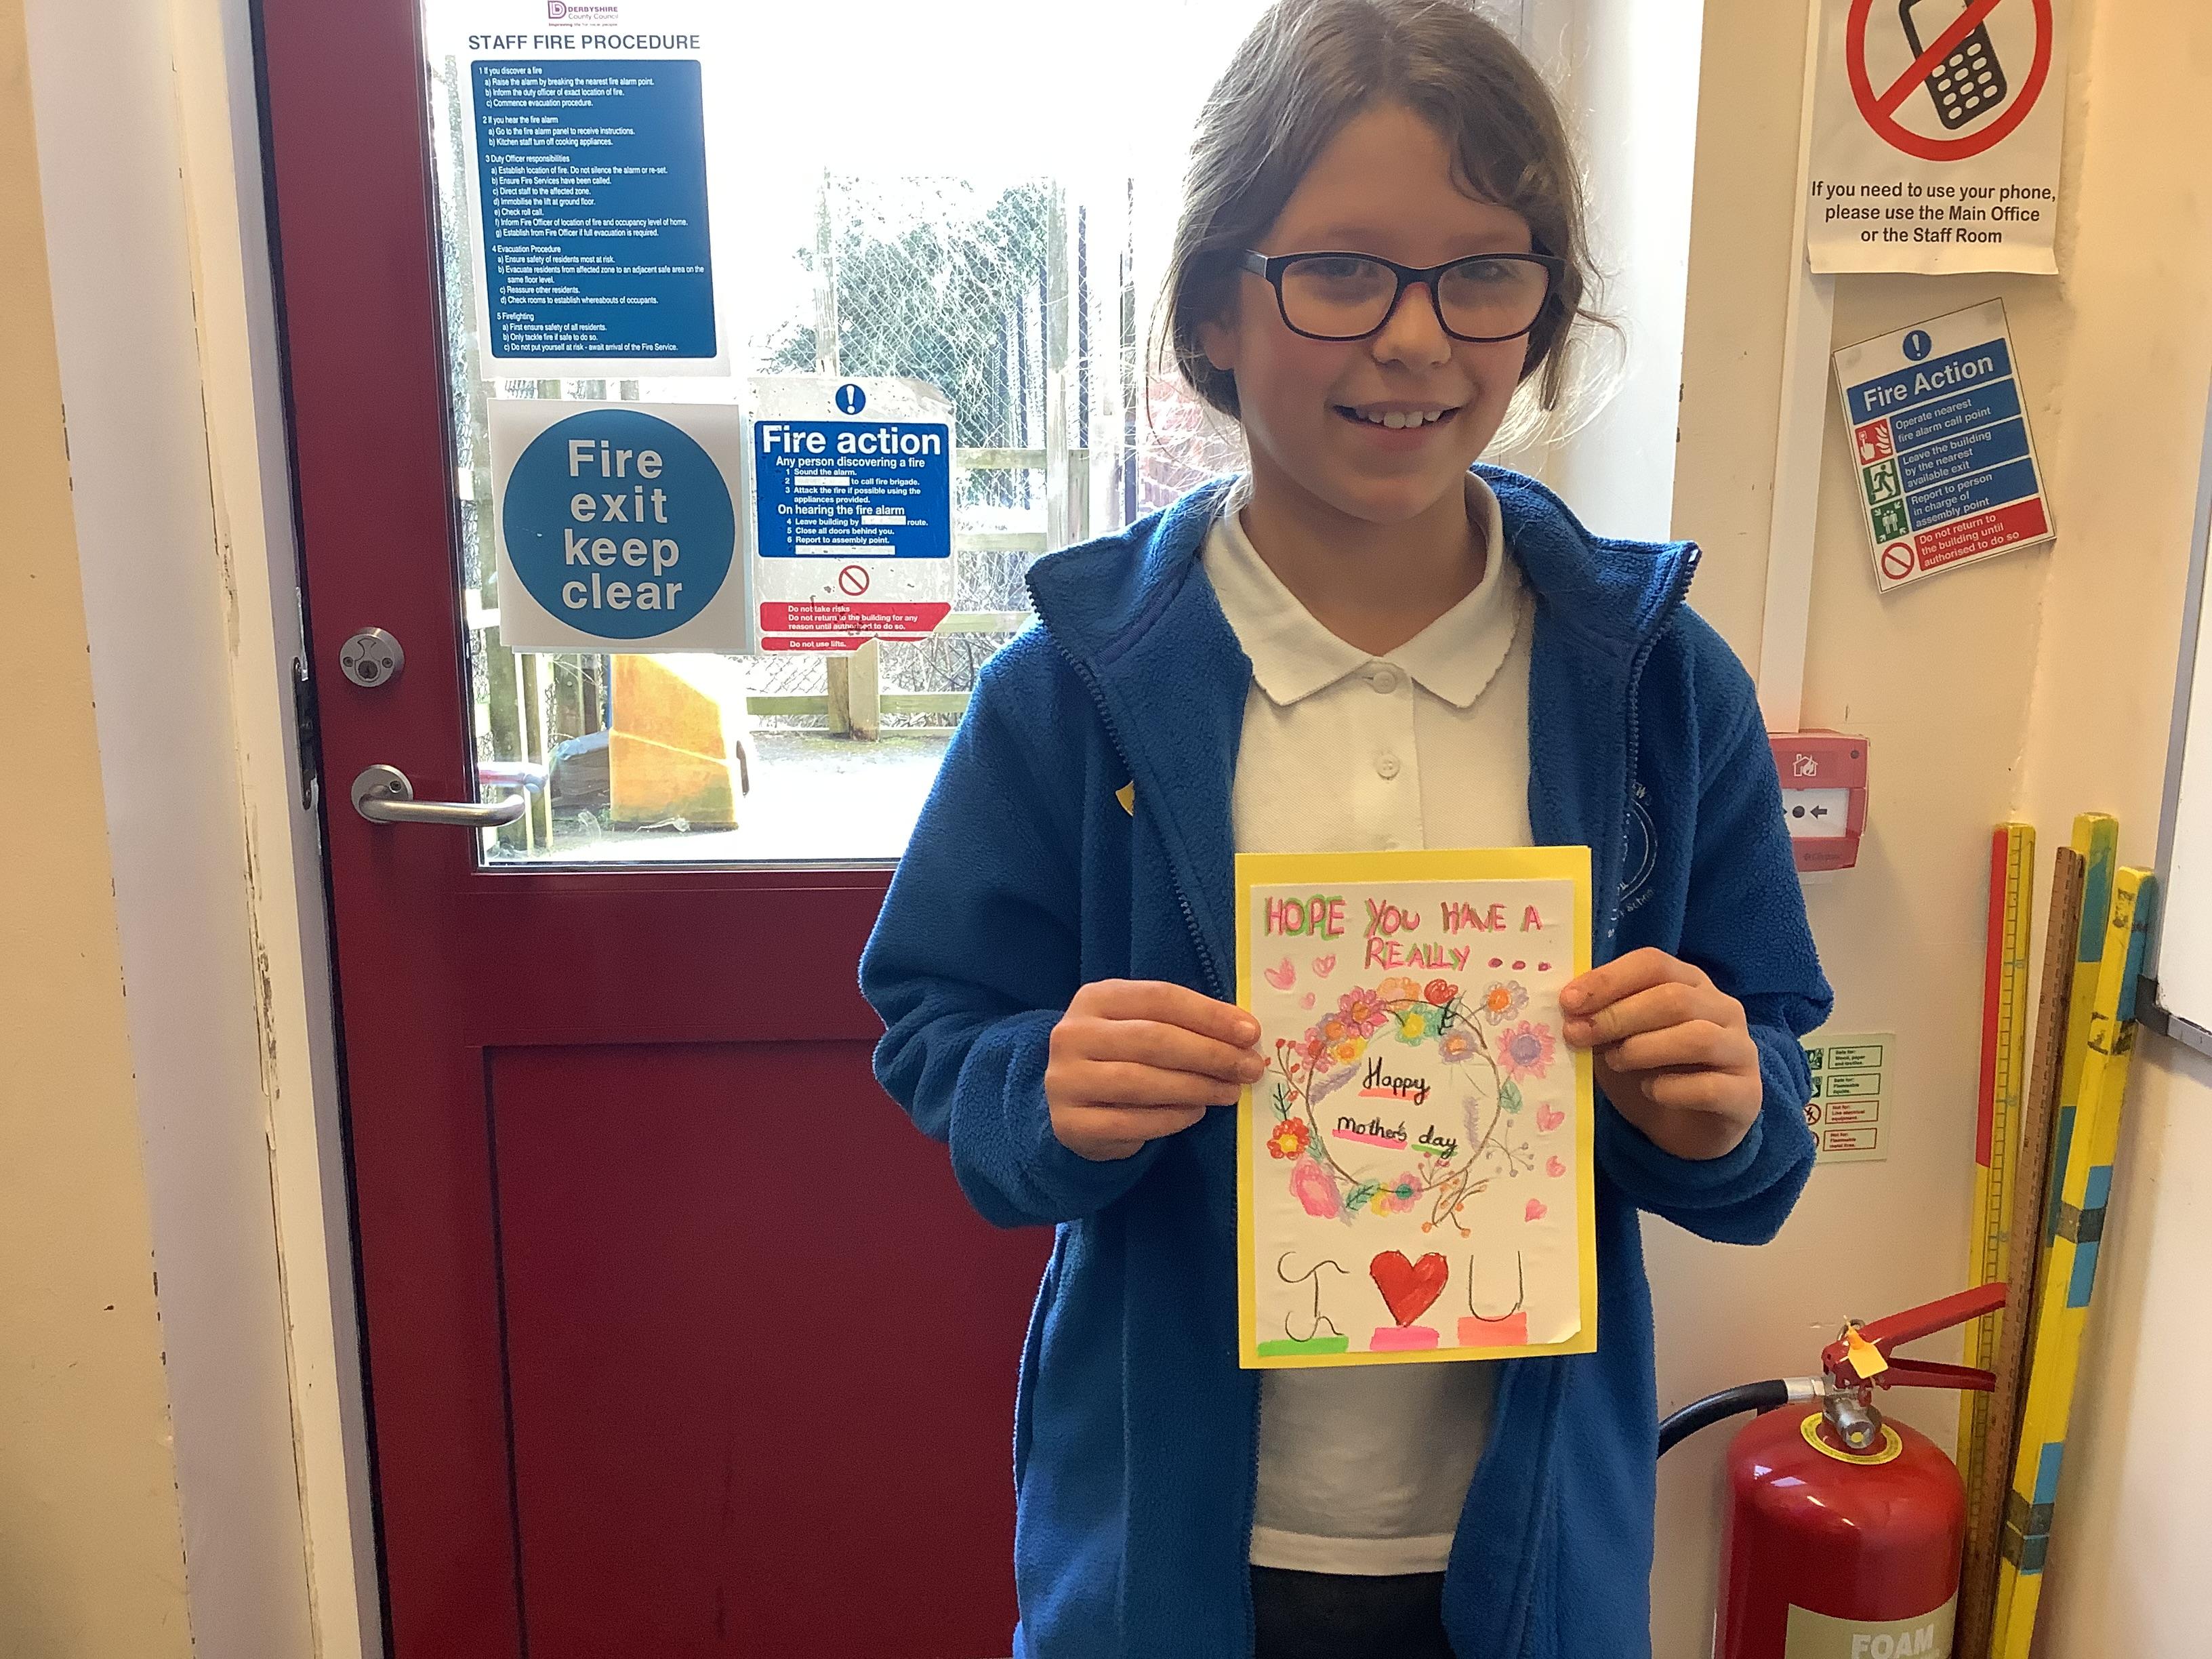 DERBYSHIRE
County Council
Improving life for local people
STAFF FIRE PROCEDURE
1 If you discover a fire
a) Raise the alarm by breaking the nearest fire alarm point.
b) Inform the duty officer of exact location of fire.
c) Commence evacuation procedure.
2 If you hear the fire alarm
a) Go to the fire alarm panel to receive instructions.
b) Kitchen staff turn off cooking appliances.
3 Duty Officer responsibilities
a) Establish location of fire. Do not silence the alarm or re-set.
b) Ensure Fire Services have been called.
c) Direct staff to the affected zone.
d) Immobilise the lift at ground floor.
e) Check roll call.
f) Inform Fire Officer of location of fire and occupancy level of home.
g) Establish from Fire Officer if full evacuation is required.
4 Evacuation Procedure
a) Ensure safety of residents most at risk.
b) Evacuate residents from affected zone to an adjacent safe area on the
same floor level.
c) Reassure other residents.
d) Check rooms to establish whereabouts of occupants.
5 Firefighting
a) First ensure safety of all residents.
b) Only tackle fire if safe to do so.
c) Do not put yourself at risk - await arrival of the Fire Service.
Fire
exit
keep
clear
Fire action
Any person discovering a fire
1 Sound the alarm.
2 to call fire brigade.
3 Attack the fire if possible using the
appliances provided.
On hearing the fire alarm
4 Leave building by route.
5 Close all doors behind you.
6 Report to assembly point.
Do not take risks
Do not return to the building for any
reason until authorised to do so.
Do not use lifts.
HOPE YOU HAVE A
REALLY ...
Happy
mother's day
I ♥ U
If you need to use your phone,
please use the Main Office
or the Staff Room
Fire Action
Operate nearest
fire alarm call point
Leave the building
by the nearest
available exit
Report to person
in charge of
assembly point
Do not return to
the building until
authorised to do so
Safe for:
Wood, paper
and textiles
Safe for:
Flammable
liquids
Not for:
Live electrical
equipment
Not for:
Flammable
metal fires
FOAM